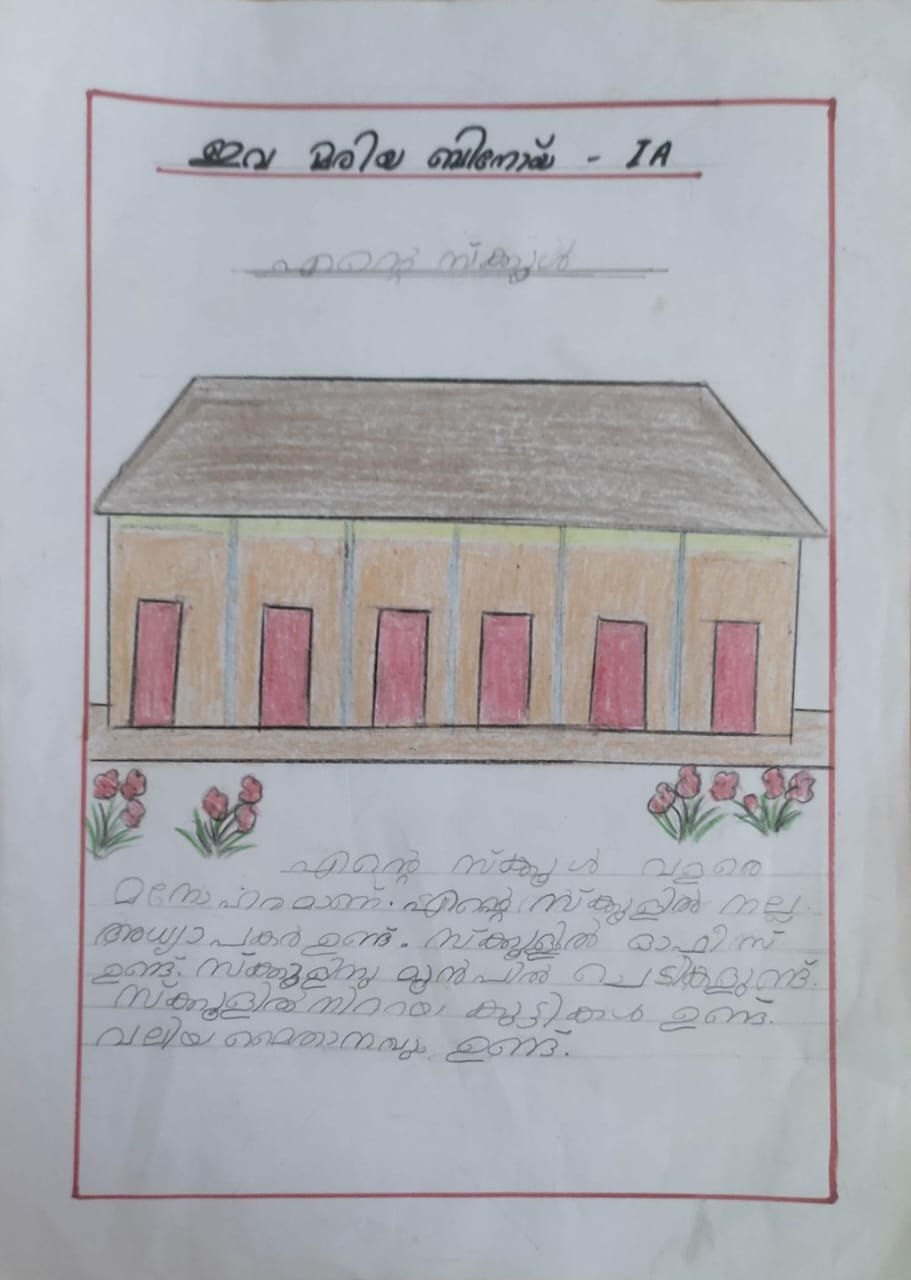 ഇവ മരിയ ബിനോയ് - I A
എന്റെ സ്ക്കൂൾ
എന്റെ സ്ക്കൂൾ വളരെ
മനോഹരമാണ്. എന്റെ സ്ക്കൂളിൽ നല്ല
അധ്യാപകർ ഉണ്ട്. സ്ക്കൂളിൽ ഓഫീസ്
ഉണ്ട്. സ്ക്കൂളിനു മുൻപിൽ ചെടികളുണ്ട്.
സ്ക്കൂളിൽ നിറയെ കുട്ടികൾ ഉണ്ട്.
വലിയ മൈതാനവും ഉണ്ട്.